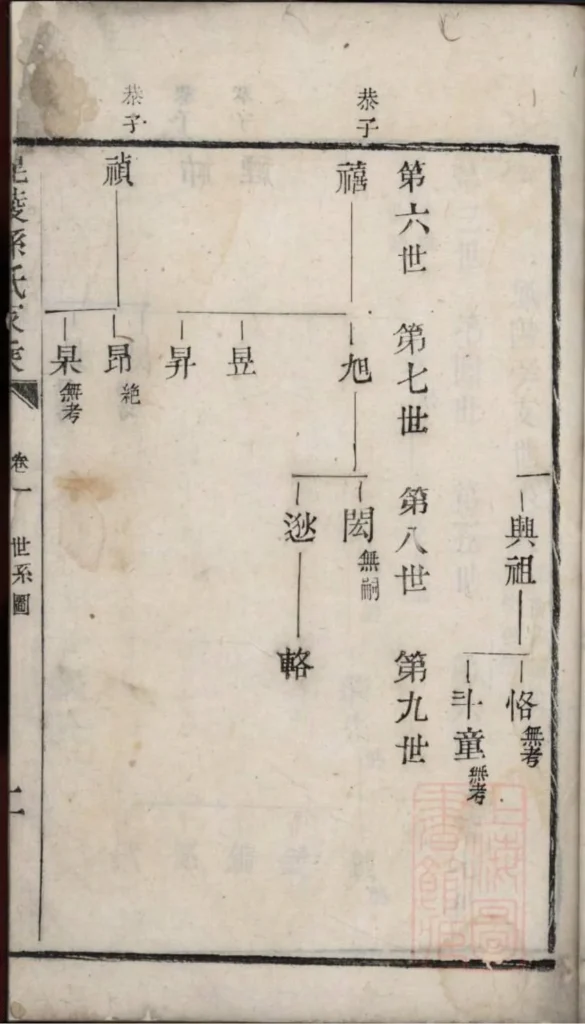 興祖
恪 無考
斗童 無考
第六世 第七世 第八世 第九世
恭子
禧
旭
閎 無嗣
逖
輅
昱
昇
恭子
禎
昂 絶
杲 無考
陵孫氏家乘
卷一 世系圖